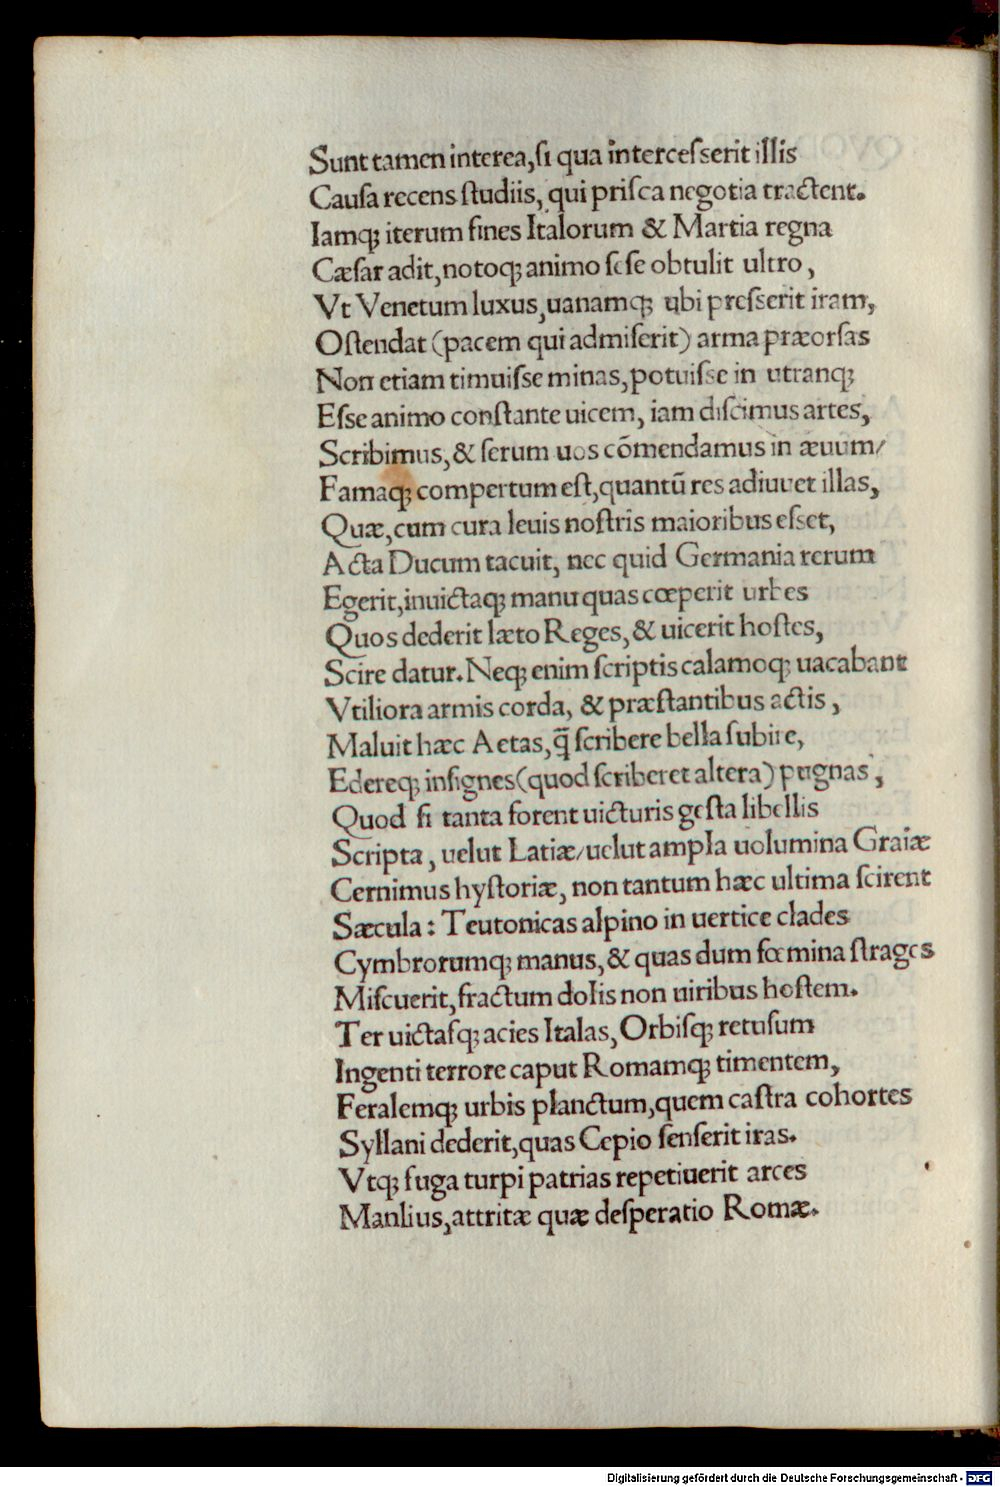 Sunt tamen interea,ſi qua intercefſerit illis
Cauſa recens ſtudiis, qui priſca negotia tractent.
Iamq; iterum fines Italorum & Martia regna
Cæſar adit,notoq; animo ſeſe obtulit ultro,
Vt Venetum luxus,uanamq; ubi preſſerit iram,
Oſtendat (pacem qui admiſerit) arma præorſas
Non etiam timuiſſe minas,potuiſſe in utranq;
Eſſe animo conſtante uicem, iam diſcimus artes,
Scribimus,& ſerum uos cōmendamus in æuum/
Famaq; compertum eſt,quantū res adiuuet illas,
Quæ,cum cura leuis noſtris maioribus eſſet,
Acta Ducum tacuit, nec quid Germania rerum
Egerit,inuictaq; manu quas cœperit urbes
Quos dederit læto Reges,& uicerit hoſtes,
Scire datur. Neq; enim ſcriptis calamoq; uacabant
Vtiliora armis corda, & præſtantibus actis,
Maluit hæc Aetas,q̄ ſcribere bella ſubire,
Edereq; inſignes(quod ſcriberet altera) pugnas,
Quod ſi tanta forent uicturis geſta libellis
Scripta, uelut Latiæ/uelut ampla uolumina Graiæ
Cernimus hyſtoriæ, non tantum hæc ultima ſcirent
Sæcula: Teutonicas alpino in uertice clades
Cymbrorumq; manus,& quas dum fœmina ſtrages
Miſcuerit,fractum dolis non uiribus hoſtem.
Ter uictaſq; acies Italas,Orbiſq; retuſum
Ingenti terrore caput Romamq; timentem,
Feralemq; urbis planctum,quem caſtra cohortes
Syllani dederit,quas Cepio ſenſerit iras.
Vtq; fuga turpi patrias repetiuerit arces
Manlius,attritæ quæ deſperatio Romæ.
Digitalisierung gefördert durch die Deutsche Forschungsgemeinschaft - DFG